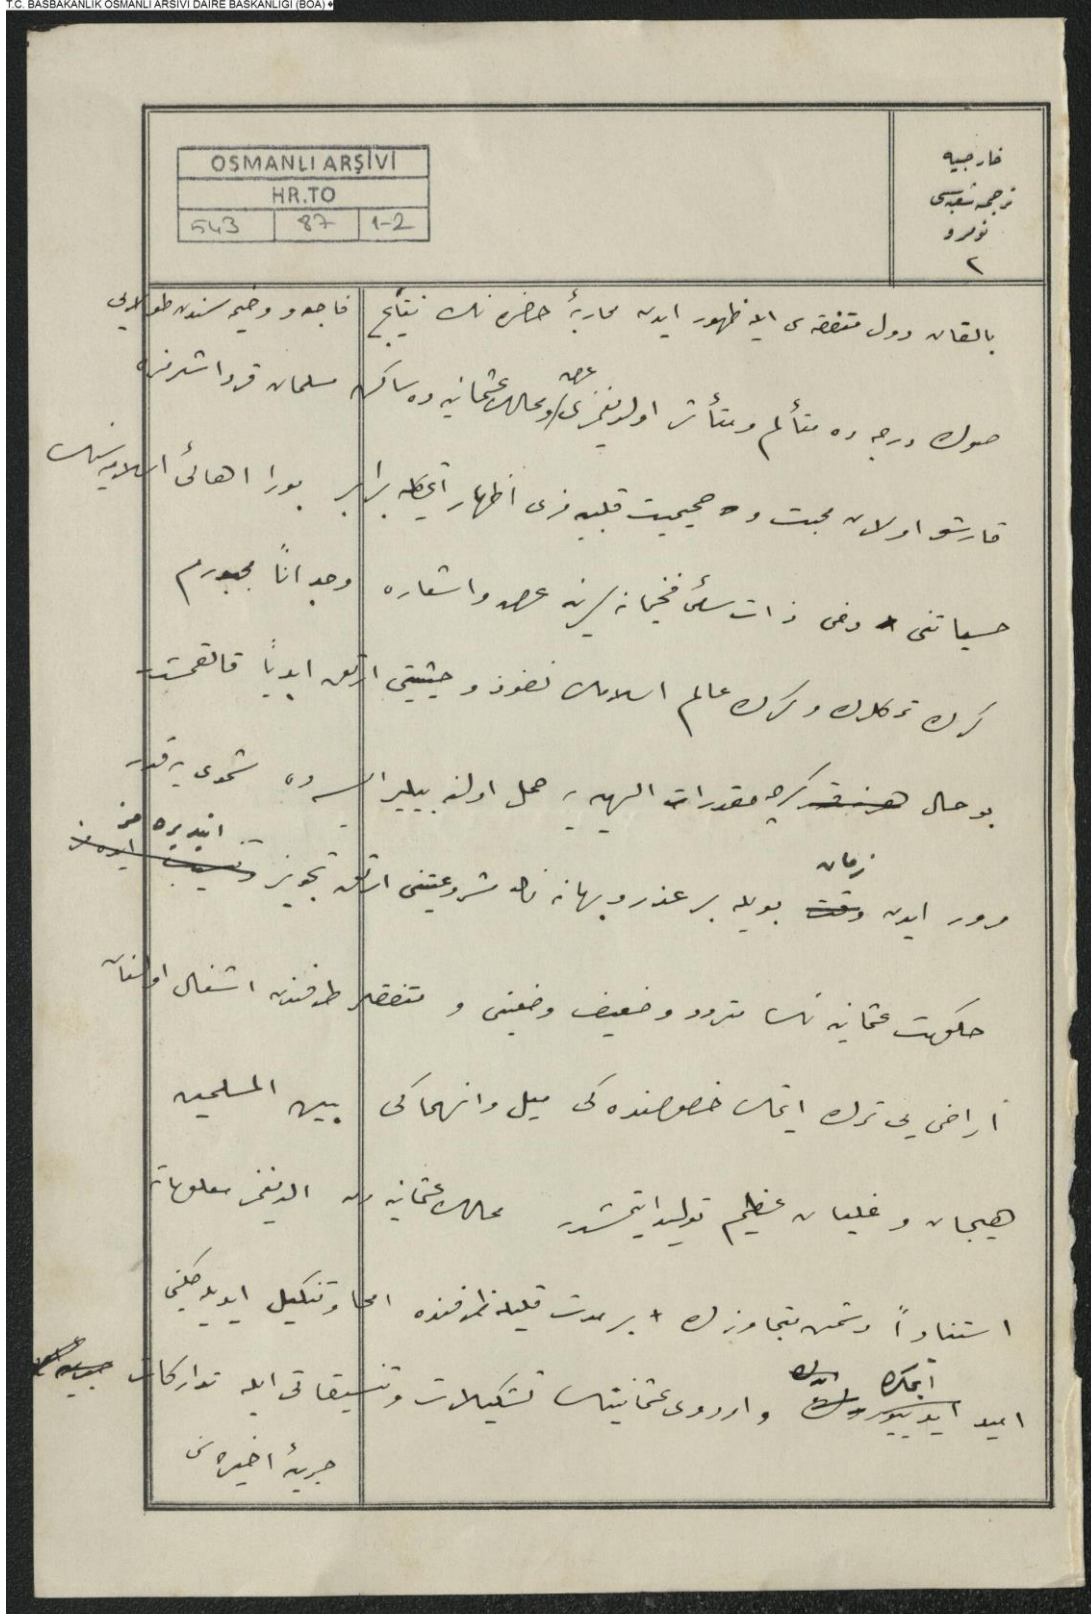 T.C. BASBAKANLIK OSMANLI ARSIVI DAIRE BASKANLIGI (BOA)
OSMANLI ARŞİVİ
HR.TO
543 87 1-2
خارجیه
ترجمه شعبه‌سی
نومرو
٢
بالقان دول متفقه‌سی ایله ظهور ایدن محاربهٔ حاضره نك نتایج فاجعه و وخیمه سندن طولایی
صوك درجه ده متألم و متأثر اولدیغمزی عرض و ممالك عثمانیه ده ساكن مسلمان قرداشلرمزه
قارشو اولان محبت و صمیمیت قلبیه مزی اظهار ایتمكله برابر بورا اهالئ اسلامیه سنك
حسیاتنی دخی ذات سامئ فخیمانه لرینه عرض و اشعاره وجداناً مجبورم
ترك توركلرك و ترك عالم اسلامك نفوذ و حیثیتی آرتق ابدیاً قالقمشدر
بو حال گرچه مقدرات الهیه یه حمل اولنه بیلیر ایسه ده شمدی یه قدر
مرور ایدن زمان بویله بر عذر و بهانه نك مشروعیتنی آرتق تجویز ایتدیره مز
حكومت عثمانیه نك متردد و ضعیف وضعیتی و متفقلر طرفندن اشغال اولنان
اراضی یی ترك ایتمك خصوصنده كی میل و انهماكی بین المسلمین
هیجان و غلیان عظیم تولید ایتمشدر ممالك عثمانیه دن الدیغمز معلوماته
استناداً دشمن متجاوزك بر مدت قلیله ظرفنده امحا و تنكیل ایدیله جكنی
امید ایتمكده ایدك و اردوی عثمانینك تشكیلات و تنسیقاتی ایله تداركات
حربیهٔ اخیره سی